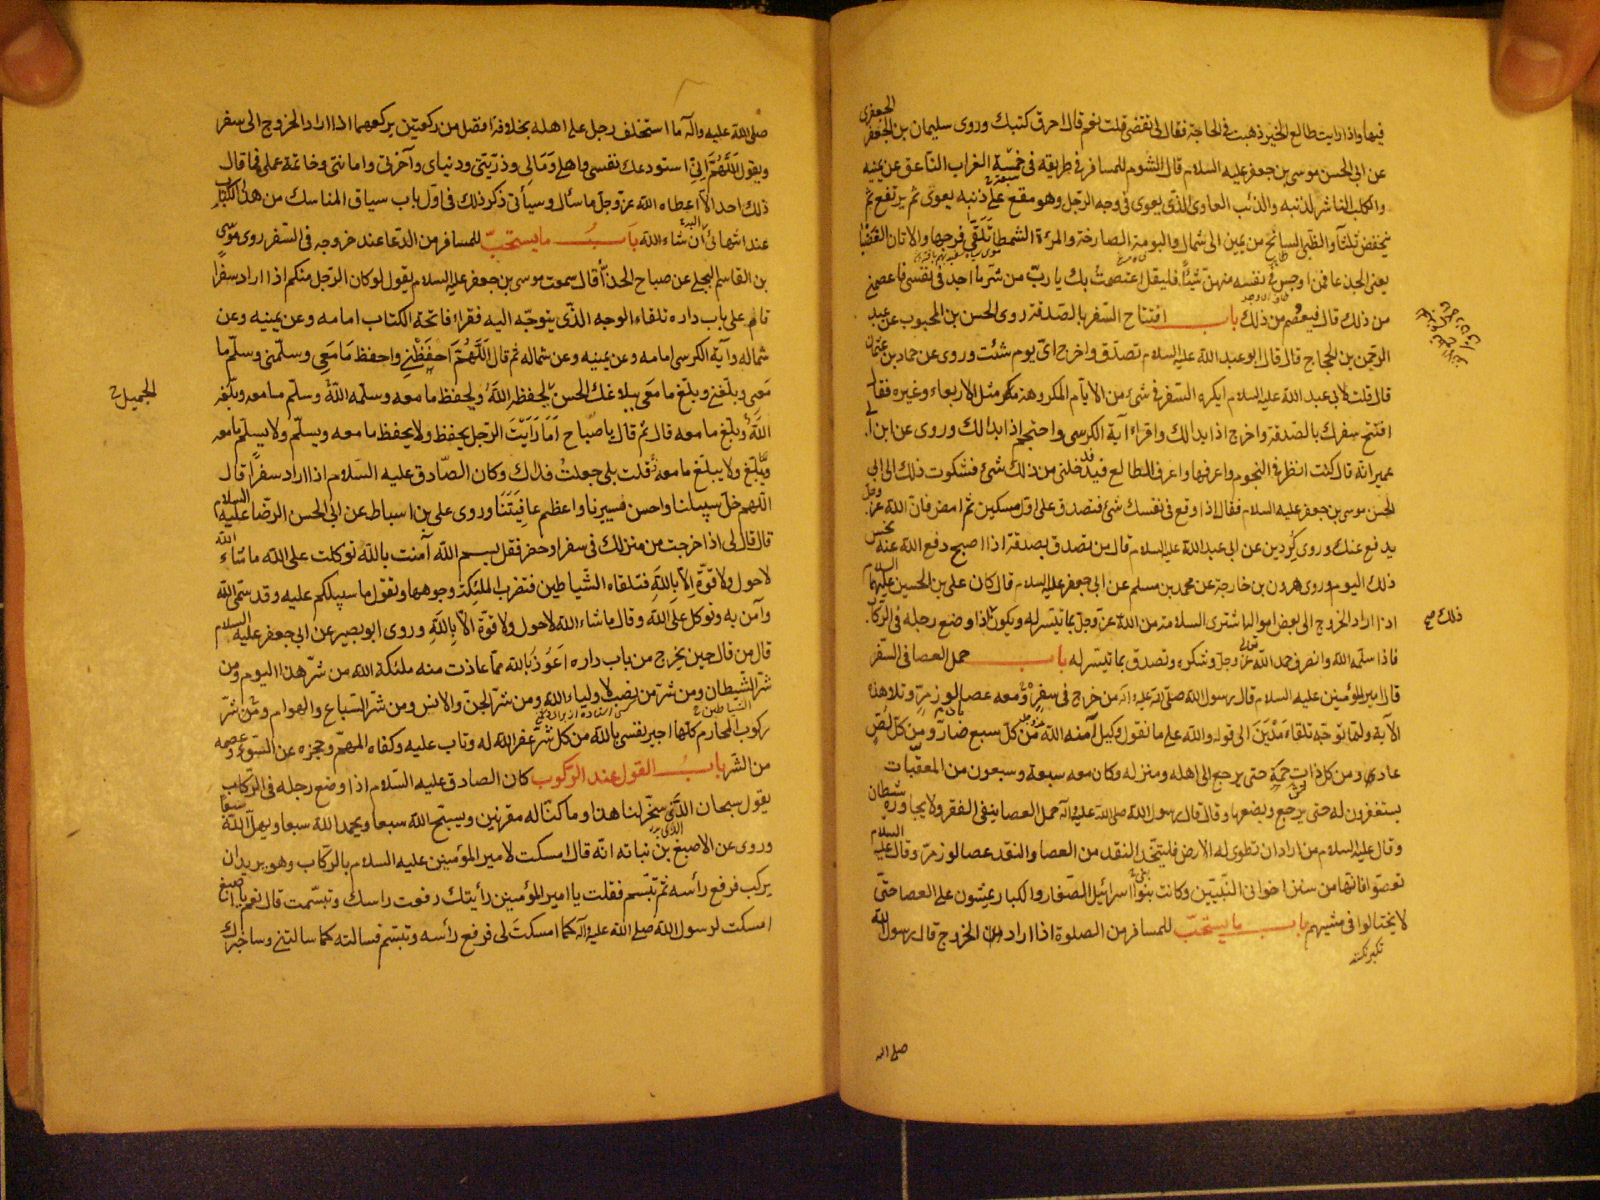 فيها واذا رايت طالع الخير ذهبت في الحاجة فقال لي تقضى قلت نعم قال احرق كتبك وروى سليمان بن الجعفر الجعفري
عن ابي الحسن موسى بن جعفر عليه السلام قال الشوم للمسافر في طريقه في خمسة الغراب الناعق عن يمينه
والكلب الناشر لذنبه والذئب العاوى الذى يعوى في وجه الرجل وهو مقع على ذنبه يعوى ثم يرتفع ثم
ينخفض ثلثا والظبي السانح من يمين الى شمال والبومة الصارخة والمرءة الشمطا تلقى فرجها والاتان العضبا
يعنى الجدعا فمن اوجس في نفسه منهن شيئا فليقل اعتصمت بك يا رب من شر ما اجد في نفسي فاعصمني
من ذلك قال فيعصم من ذلك باب افتتاح السفر بالصدقة روى الحسن بن المحبوب عن عبد
الرحمن بن الحجاج قال قال ابو عبد الله عليه السلام تصدق واخرج اى يوم شئت وروى عن حماد بن عثمان
قال قلت لابي عبد الله عليه السلام ايكره السفر في شئ من الايام المكروهة مثل الاربعاء وغيره فقال
افتتح سفرك بالصدقة واخرج اذا بدالك واقراء آية الكرسي واحتجم اذا بدالك وروى عن ابن ابي
عمير انه قال كنت انظر في النجوم واعرفها واعرف الطالع فيدخلني من ذلك شئ فشكوت ذلك الى ابي
الحسن موسى بن جعفر عليه السلام فقال اذا وقع في نفسك شئ فتصدق على اول مسكين ثم امض فان الله عز وجل
يدفع عنك وروى كردين عن ابي عبد الله عليه السلام قال من تصدق بصدقة اذا اصبح دفع الله عنه نحس
ذلك اليوم وروى هرون بن خارجة عن محمد بن مسلم عن ابي جعفر عليه السلام قال كان علي بن الحسين عليهما السلام
اذا اراد الخروج الى بعض امواله اشترى السلامة من الله عز وجل بما تيسر له ويكون ذلك اذا وضع رجله في الركاب
فاذا سلمه الله وانصرف حمد الله عز وجل وشكره وتصدق بما تيسر له باب حمل العصا في السفر
قال امير المؤمنين عليه السلام قال رسول الله صلى الله عليه وآله من خرج في سفر ومعه عصا لوز مر وتلا هذه
الآية ولما توجه تلقاء مدين الى قوله والله على ما نقول وكيل آمنه الله من كل سبع ضار ومن كل لص
عاد ومن كل ذات حمة حتى يرجع الى اهله ومنزله وكان معه سبعة وسبعون من المعقبات
يستغفرون له حتى يرجع ويضعها وقال قال رسول الله صلى الله عليه وآله حمل العصا ينفي الفقر ولا يجاوره شيطان
وقال عليه السلام من اراد ان تطوى له الارض فليتخذ النقد من العصا والنقد عصا لوز مر وقال عليه السلام
تعصوا فانها من سنن اخواني النبيين وكانت بنوا اسرائيل الصغار والكبار يمشون على العصا حتى
لا يختالوا في مشيهم باب ما يستحب للمسافر من الصلوة اذا اراد الخروج قال رسول الله
صلى الله
ذلك صح
صلى الله عليه وآله ما استخلف رجل على اهله بخلافة افضل من ركعتين يركعهما اذا اراد الخروج الى سفر
ويقول اللهم اني استودعك نفسي واهلي ومالي وذريتي ودنياي وآخرتي وامانتي وخاتمة عملي فما قال
ذلك احد الا اعطاه الله عز وجل ما سأل وسيأتي ذكر ذلك في اول باب سياق المناسك من هذا الكتاب
عند انتهائي اليه ان شاء الله باب ما يستحب للمسافر من الدعا عند خروجه في السفر روى موسى
بن القاسم البجلي عن صباح الحذأ قال سمعت موسى بن جعفر عليه السلام يقول لو كان الرجل منكم اذا اراد سفرا
قام على باب داره تلقاء الوجه الذي يتوجه اليه فقراء فاتحة الكتاب امامه وعن يمينه وعن
شماله وآية الكرسي امامه وعن يمينه وعن شماله ثم قال اللهم احفظني واحفظ ما معي وسلمني وسلم ما
معي وبلغني وبلغ ما معي ببلاغك الحسن لحفظه الله ولحفظ ما معه وسلمه الله وسلم ما معه وبلغه
الله وبلغ ما معه قال ثم قال يا صباح اما رايت الرجل يحفظ ولا يحفظ ما معه ويسلم ولا يسلم ما معه
ويبلغ ولا يبلغ ما معه قلت بلى جعلت فداك وكان الصادق عليه السلام اذا اراد سفرا قال
اللهم خل سبيلنا واحسن مسيرنا واعظم عافيتنا وروى علي بن اسباط عن ابي الحسن الرضا عليه السلام
قال قال لي اذا خرجت من منزلك في سفر او حضر فقل بسم الله آمنت بالله توكلت على الله ما شاء الله
لا حول ولا قوة الا بالله فتلقاه الشياطين فتضرب الملئكة وجوهها وتقول ما سبيلكم عليه وقد سمى الله
وآمن به وتوكل على الله وقال ما شاء الله لا حول ولا قوة الا بالله وروى ابو بصير عن ابي جعفر عليه السلام
قال من قال حين يخرج من باب داره اعوذ بالله مما عاذت منه ملئكة الله من شر هذا اليوم ومن
شر الشيطان ومن شر من نصب لاولياء الله ومن شر الجن والانس ومن شر السباع والهوام ومن شر
ركوب المحارم كلها اجير نفسي بالله من كل شر غفر الله له وتاب عليه وكفاه المهم وحجزه عن السوء وعصمه
من الشر باب القول عند الركوب كان الصادق عليه السلام اذا وضع رجله في الركاب
يقول سبحان الذي سخر لنا هذا وما كنا له مقرنين ويسبح الله سبعا ويحمد الله سبعا ويهلل الله سبعا
وروى عن الاصبغ بن نباته انه قال امسكت لامير المؤمنين عليه السلام بالركاب وهو يريد ان
يركب فرفع رأسه ثم تبسم فقلت يا امير المؤمنين رأيتك رفعت راسك وتبسمت قال نعم يا اصبغ
امسكت لرسول الله صلى الله عليه وآله كما امسكت لي فرفع رأسه وتبسم فسالته كما سالتني وساخبرك
الجميل خ